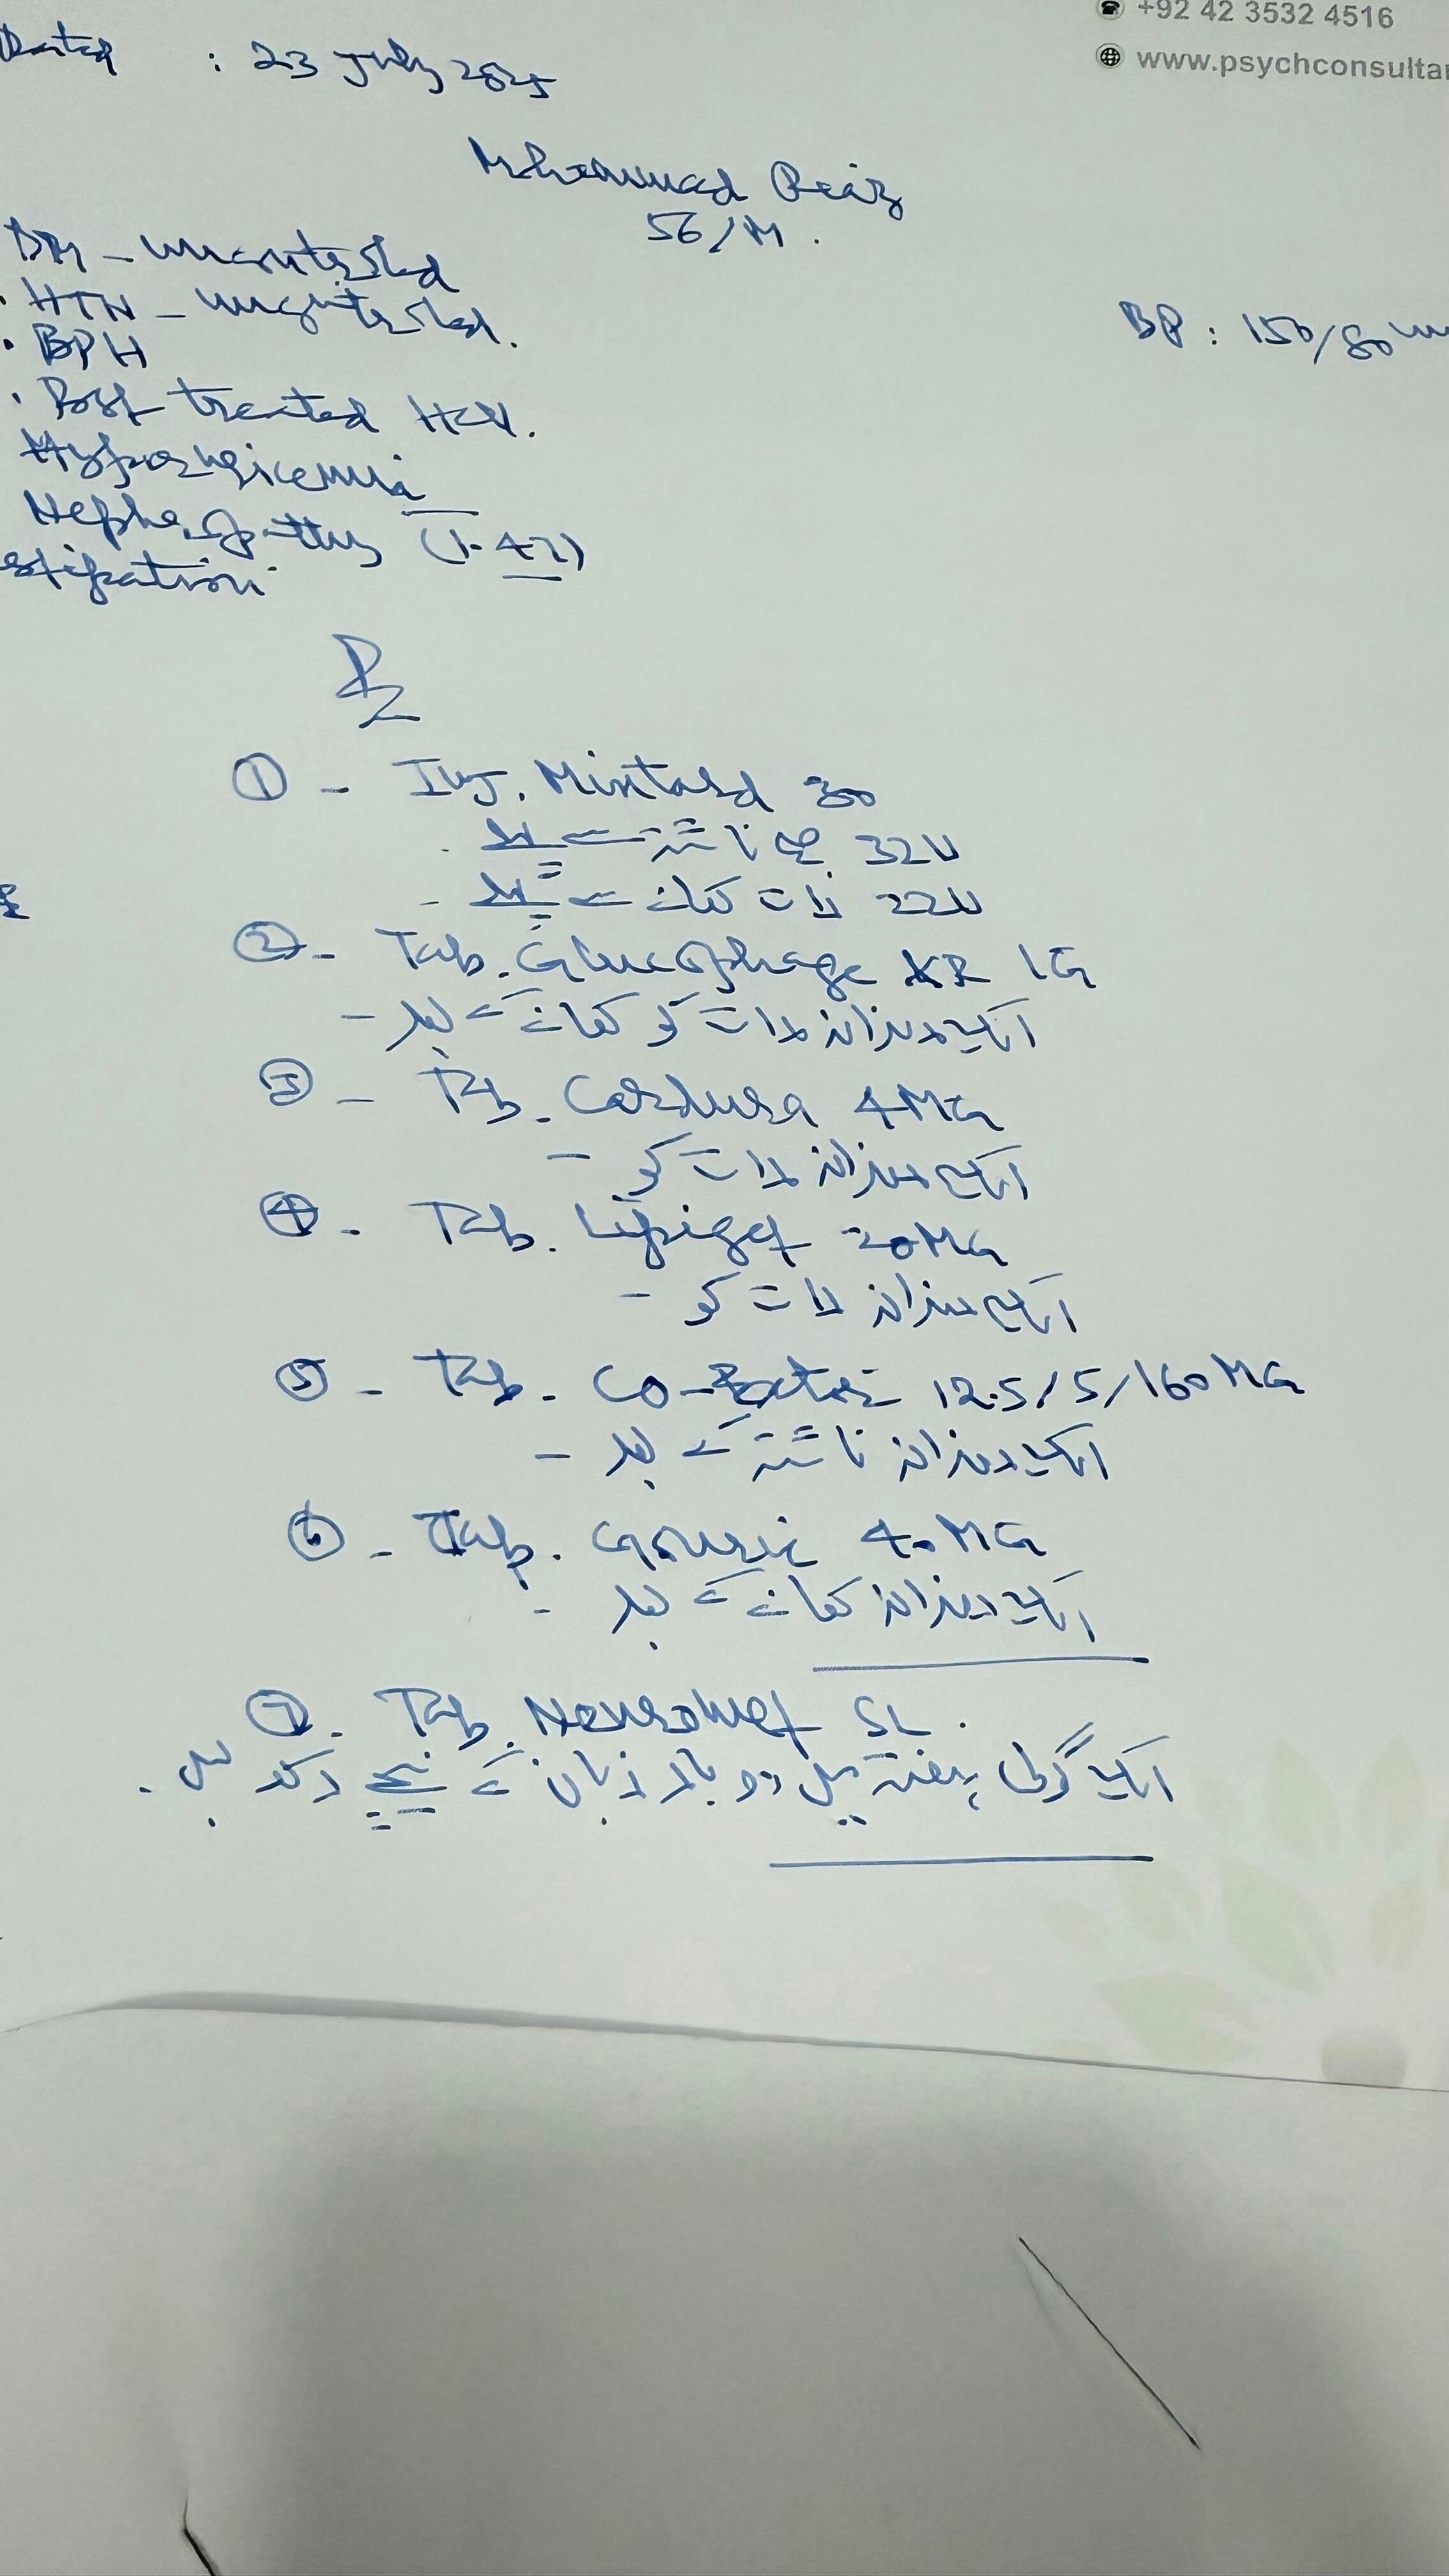 +92 42 3532 4516
www.psychconsultan
Dated : 23 July 2025
Mohammad Riaz
56/M.
DM - uncontrolled
· HTN - uncontrolled.
BP : 150/80 mm
· BPH
· treated HCV.
Hyperuricemia
Nephropathy (1.42)
stipation
Rx
① - Inj. Mixtard 30
32U صبح ناشتے سے پہلے
22U رات کھانے سے پہلے -
② - Tab. Glucophage XR 1G
ایک روزانہ رات کو کھانے کے بعد -
③ - Tab. Cardura 4MG
ایک روزانہ رات کو -
④ - Tab. Lipiget 20MG
ایک روزانہ رات کو -
⑤ - Tab. Co- 12.5/5/160MG
ایک روزانہ ناشتے کے بعد -
⑥ - Tab. Gouric 40MG
ایک روزانہ کھانے کے بعد -
⑦. Tab. Neuromet SL.
ایک گولی ہفتہ میں دو بار زبان کے نیچے رکھ لیں .